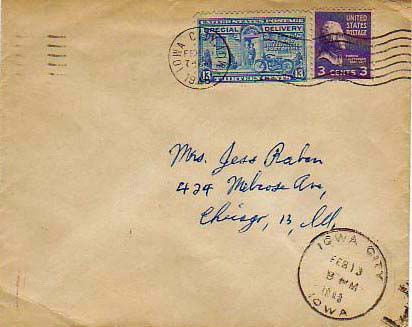 UNITED STATES POSTAGE
SPECIAL DELIVERY
13 THIRTEEN CENTS 13
UNITED
STATES
POSTAGE
3 CENTS 3
IOWA C
FEB
Mrs. Jess Raban
424 Melrose Ave,
Chicago, 13, Ill.
IOWA CITY
FEB 13
PM
IOWA